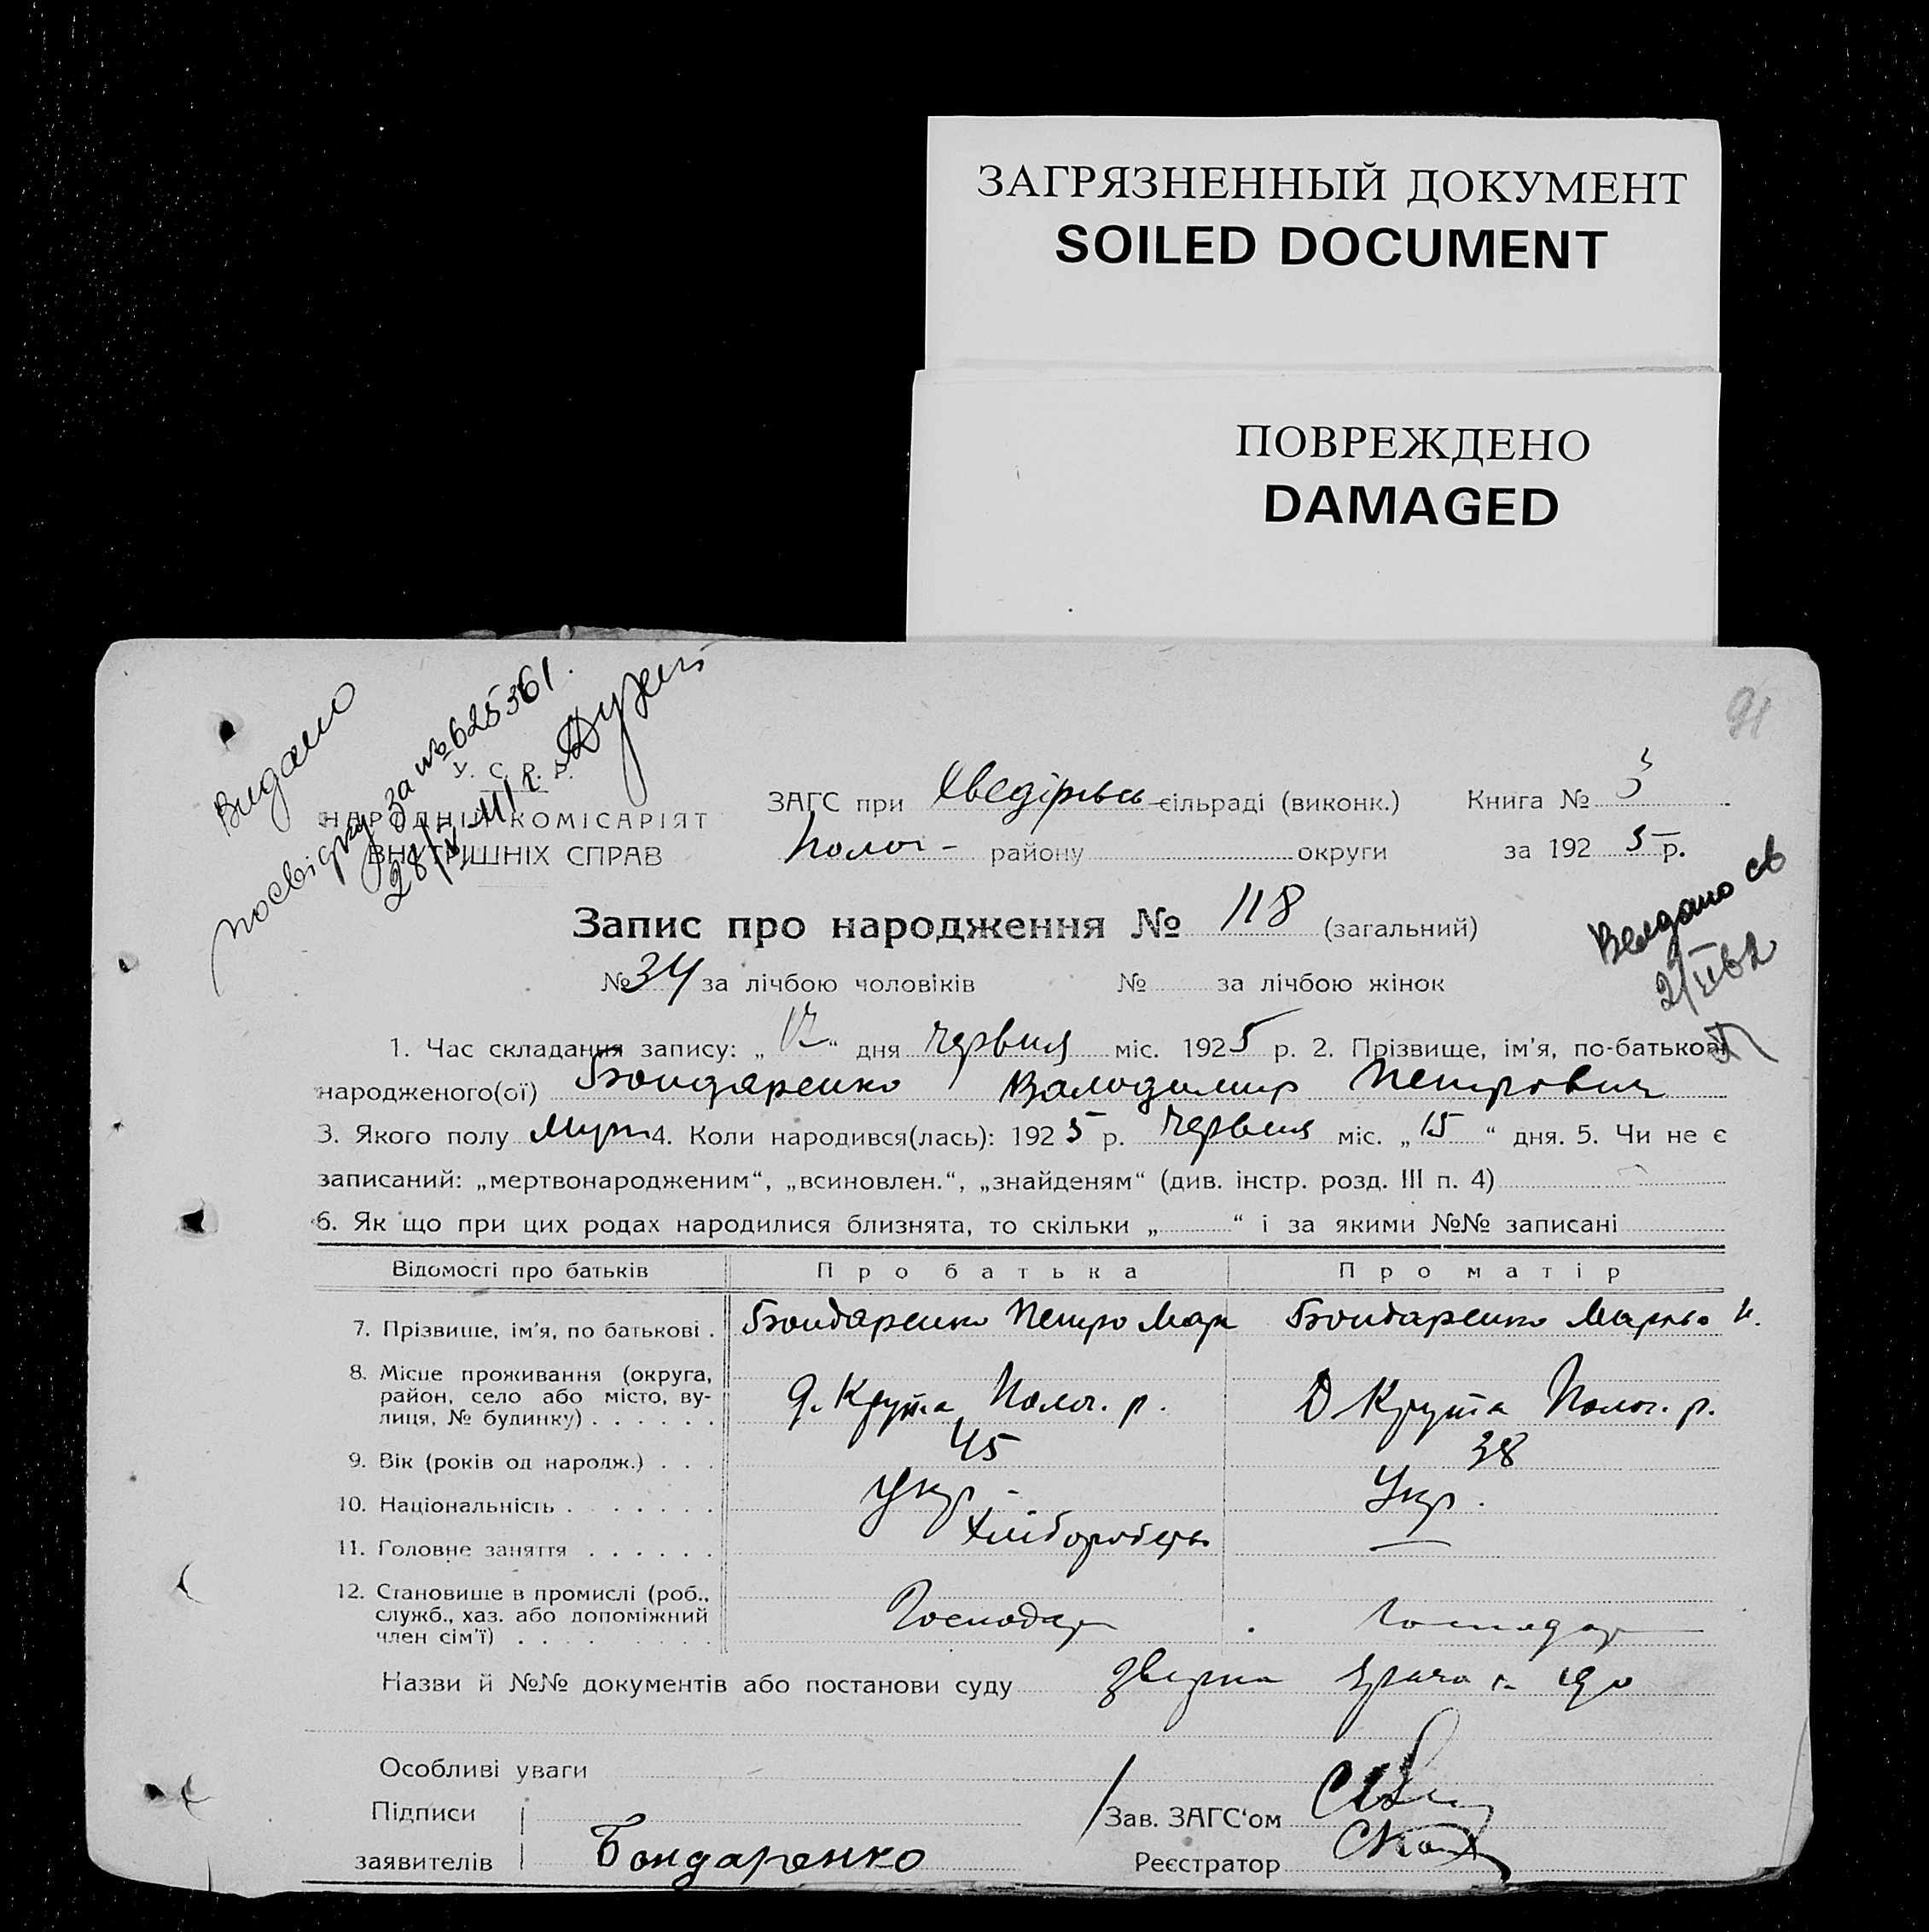 ЗАГРЯЗНЕННЫЙ ДОКУМЕНТ
SOILED DOCUMENT
ПОВРЕЖДЕНО
DAMAGED
91
Видано
посвідку за №625361.
28/V
У. С. Р. Р.
НАРОДНІЙ КОМІСАРІЯТ
ВНУТРІШНІХ СПРАВ
ЗАГС при Хведірівсь- сільраді (виконк.) Книга № 3
Полог- району округи за 1925 р.
Видано св
Запис про народження № 118 (загальний)
№ 34 за лічбою чоловіків № за лічбою жінок
1. Час складання запису: „ “ дня червня міс. 1925 р. 2. Прізвище, ім'я, по-батькові
народженого(ої) Бондаренко Володимир Петрович
3. Якого полу Муж 4. Коли народився(лась): 1925 р. Червня міс. „15“ дня. 5. Чи не є
записаний: „мертвонародженим“, „всиновлен.“, „знайденям“ (див. інстр. розд. III п. 4)
6. Як що при цих родах народилися близнята, то скільки „ “ і за якими №№ записані
Відомості про батьків Про батька Про матір
7. Прізвище, ім'я, по батькові . Бондаренко Петро Мар Бондаренко Марья И.
8. Місце проживання (округа,
район, село або місто, ву-
лиця, № будинку) . . . . . . д. Крута Полог. р. Д Крута Полог. р.
9. Вік (років од народж.) . . . 45 38
10. Національність . . . . . . . Укр.- Укр.
11. Головне заняття . . . . . . Хліборобець —
12. Становище в промислі (роб.,
служб., хаз. або допоміжний
член сім'ї) . . . . . . . . . Господар господар
Назви й №№ документів або постанови суду
Особливі уваги
Підписи
Зав. ЗАГС'ом
заявителів Бондаренко Реєстратор